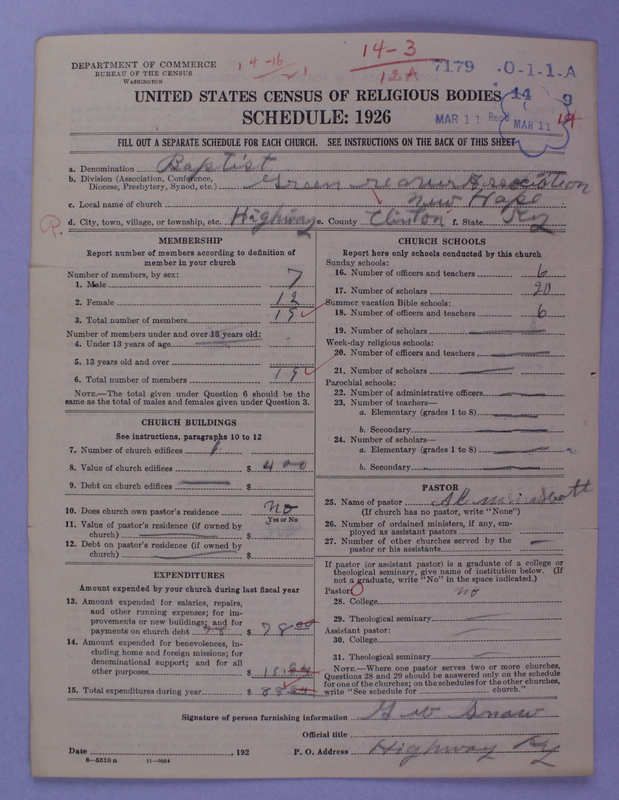 DEPARTMENT OF COMMERCE
BUREAU OF THE CENSUS
WASHINGTON
14-16
14-3
12A
7179 .0-1-1-A
UNITED STATES CENSUS OF RELIGIOUS BODIES
14 9
SCHEDULE: 1926
MAR 11 Rec'd MAR 11
FILL OUT A SEPARATE SCHEDULE FOR EACH CHURCH. SEE INSTRUCTIONS ON THE BACK OF THIS SHEET
a. Denomination Baptist
b. Division (Association, Conference, Diocese, Presbytery, Synod, etc.) Green River Association
c. Local name of church New Hope
d. City, town, village, or township, etc. Highway e. County Clinton f. State Ky
MEMBERSHIP
Report number of members according to definition of member in your church
Number of members, by sex:
1. Male 7
2. Female 12
3. Total number of members 19
Number of members under and over 13 years old:
4. Under 13 years of age
5. 13 years old and over
6. Total number of members 19
NOTE.—The total given under Question 6 should be the same as the total of males and females given under Question 3.
CHURCH BUILDINGS
See instructions, paragraphs 10 to 12
7. Number of church edifices 1
8. Value of church edifices $ 400
9. Debt on church edifices $
10. Does church own pastor's residence no
Yes or No
11. Value of pastor's residence (if owned by church) $
12. Debt on pastor's residence (if owned by church) $
EXPENDITURES
Amount expended by your church during last fiscal year
13. Amount expended for salaries, repairs, and other running expenses; for improvements or new buildings; and for payments on church debt $ 78 00
14. Amount expended for benevolences, including home and foreign missions; for denominational support; and for all other purposes $
15. Total expenditures during year $
CHURCH SCHOOLS
Report here only schools conducted by this church
Sunday schools:
16. Number of officers and teachers 6
17. Number of scholars 20
Summer vacation Bible schools:
18. Number of officers and teachers 6
19. Number of scholars
Week-day religious schools:
20. Number of officers and teachers
21. Number of scholars
Parochial schools:
22. Number of administrative officers
23. Number of teachers—
a. Elementary (grades 1 to 8)
b. Secondary
24. Number of scholars—
a. Elementary (grades 1 to 8)
b. Secondary
PASTOR
25. Name of pastor
(If church has no pastor, write "None")
26. Number of ordained ministers, if any, employed as assistant pastors
27. Number of other churches served by the pastor or his assistants
If pastor (or assistant pastor) is a graduate of a college or theological seminary, give name of institution below. (If not a graduate, write "No" in the space indicated.)
Pastor:
28. College no
29. Theological seminary
Assistant pastor:
30. College
31. Theological seminary
NOTE.—Where one pastor serves two or more churches, Questions 28 and 29 should be answered only on the schedule for one of the churches; on the schedules for the other churches, write "See schedule for church."
Signature of person furnishing information G W Snow
Official title
Date , 192 P. O. Address Highway Ky
8—5518 a 11—9064